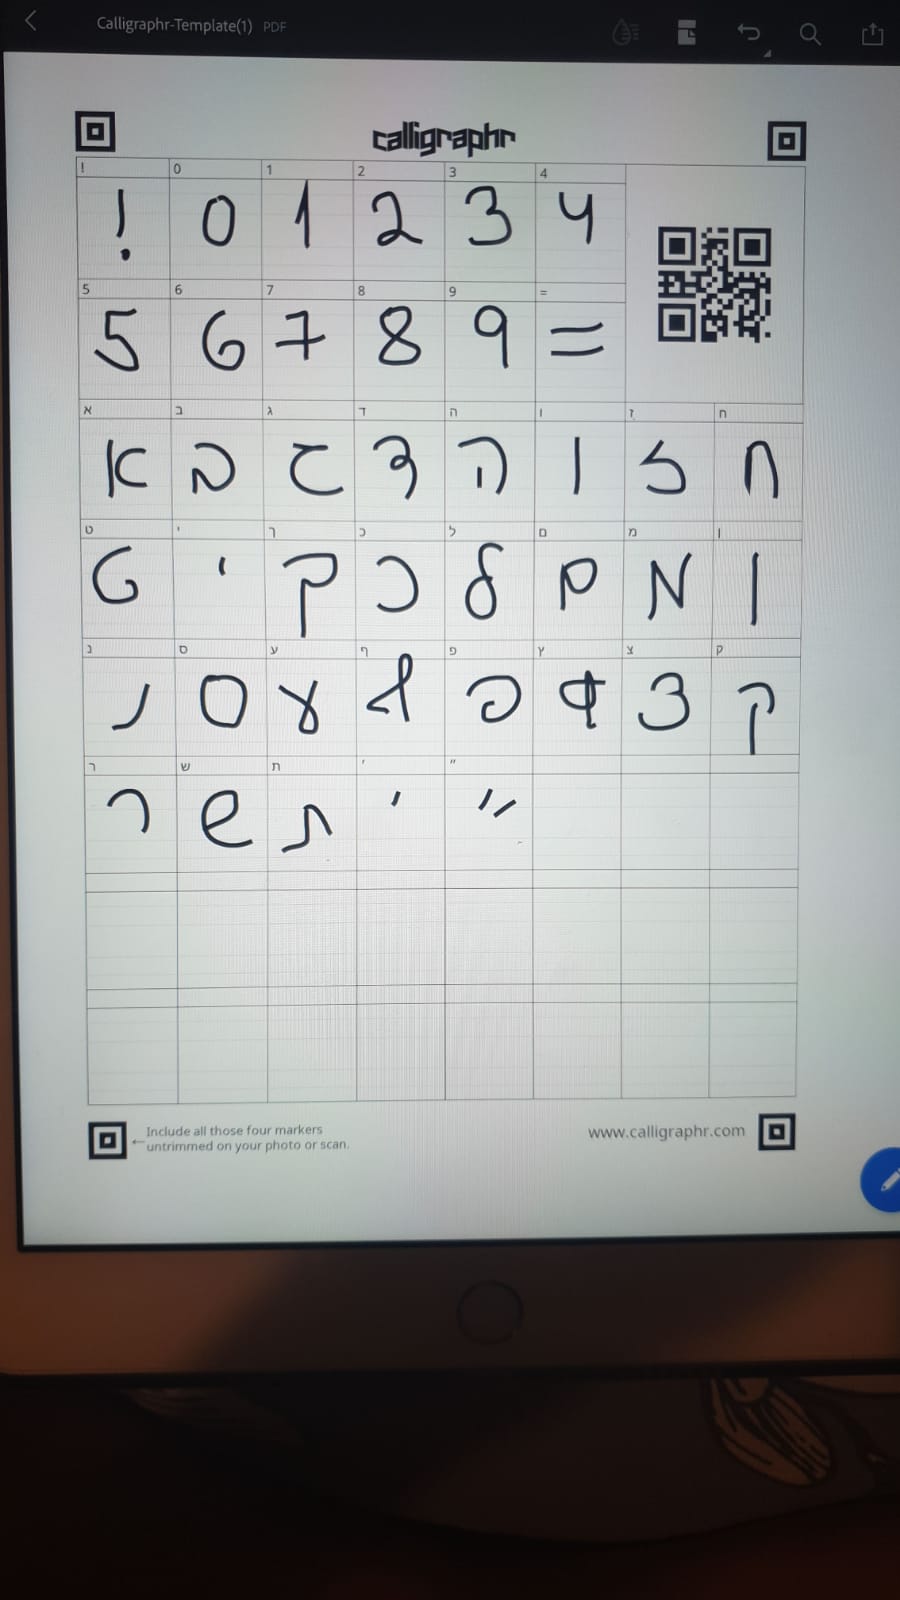 Calligraphr-Template(1) PDF
calligraphr
! 0 1 2 3 4
! 0 1 2 3 4
5 6 7 8 9 =
5 6 7 8 9 =
א ב ג ד ה ו ז ח
א ב ג ד ה ו ז ח
ט י ך כ ל ם מ ן
ט י ך כ ל ם מ ן
נ ס ע ף פ ץ צ ק
נ ס ע ף פ ץ צ ק
ר ש ת ׳ ״
ר ש ת ׳ ״
Include all those four markers
← untrimmed on your photo or scan.
www.calligraphr.com